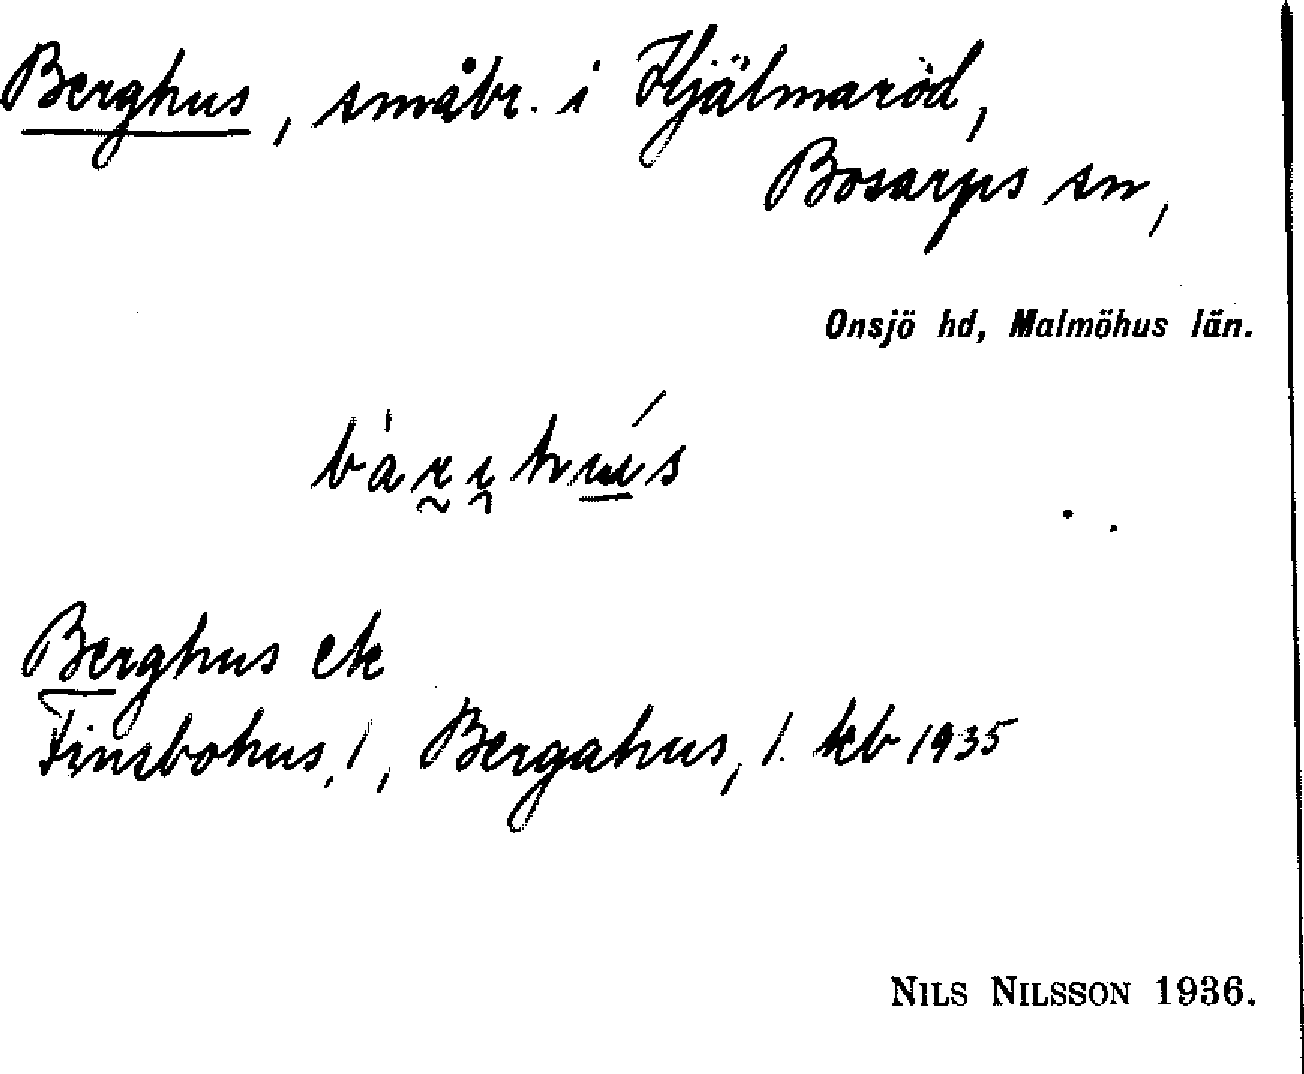 Berghus, småbr. i Hjälmaröd,
Bosarps sn,
Onsjö hd, Malmöhus län.
Berghus ek
Finsbohus, l, Bergahus, l. kb 1935
NILS NILSSON 1936.